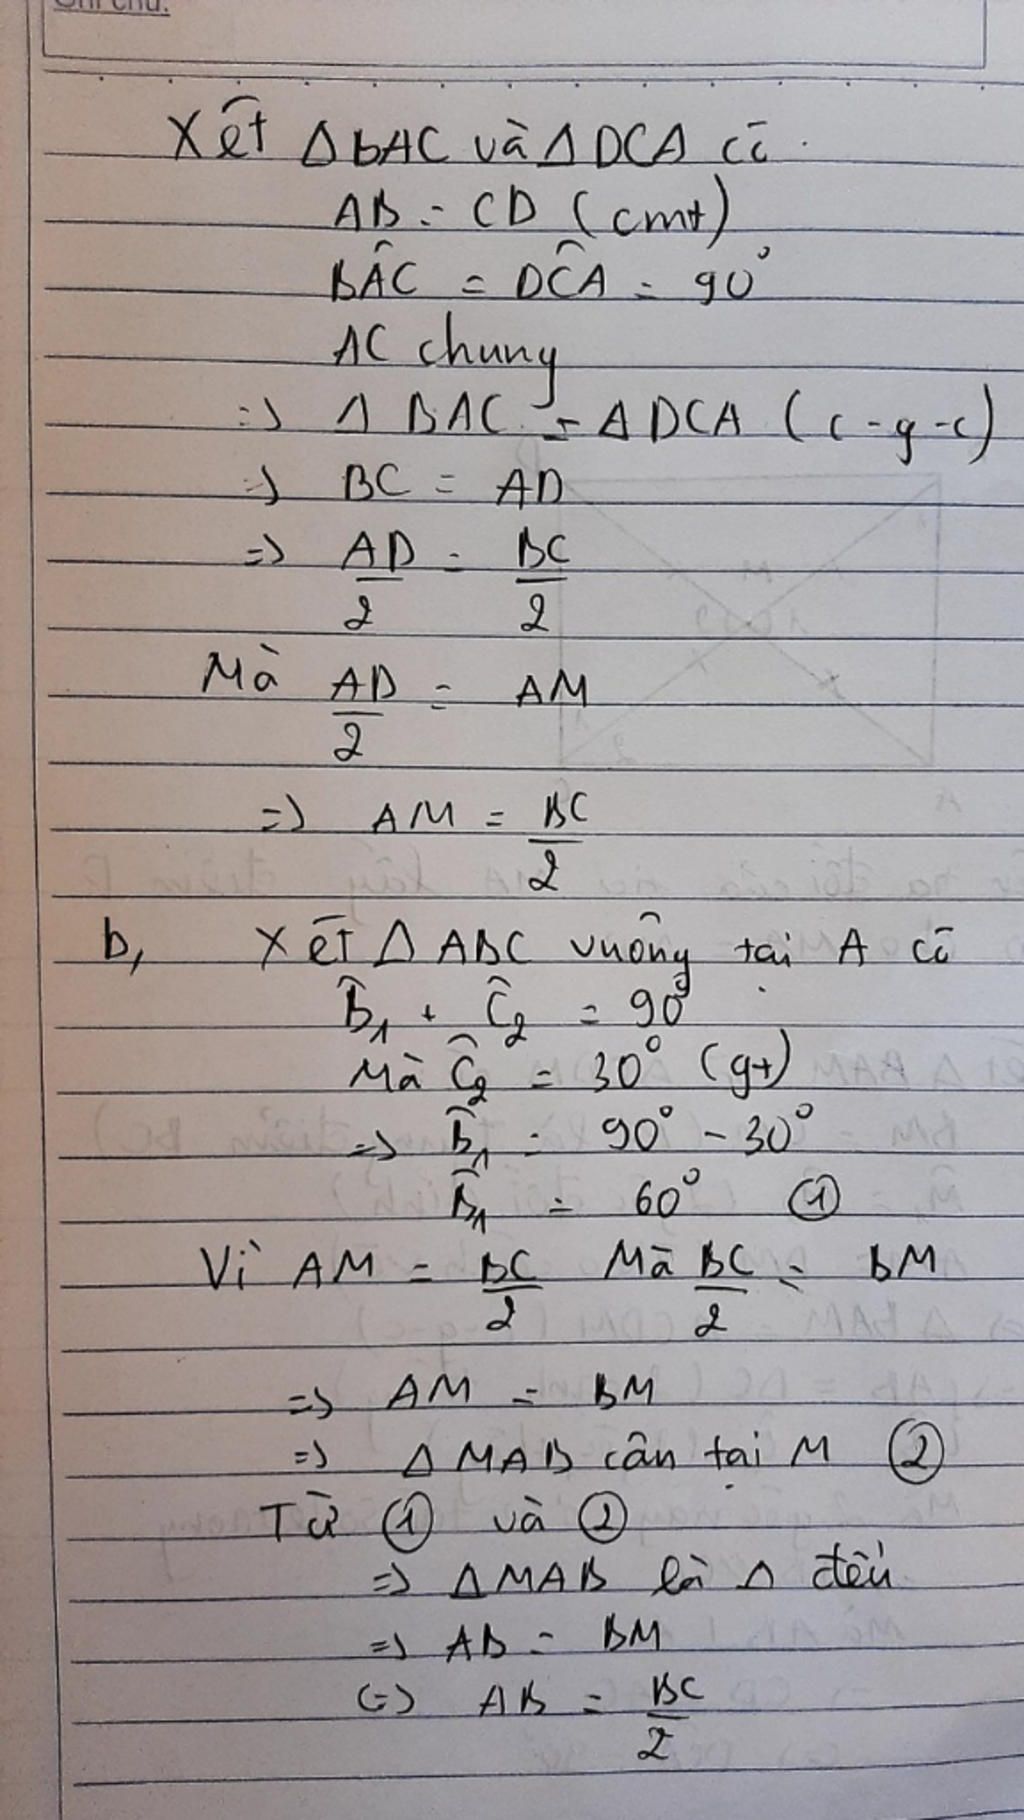 Ghi chú:
Xét Δ BAC và Δ DCA có
AB = CD (cmt)
BÂC = DĈA = 90°
AC chung
=> Δ BAC = Δ DCA (c-g-c)
=> BC = AD
=> AD/2 = BC/2
Mà AD/2 = AM
=> AM = BC/2
b, Xét Δ ABC vuông tại A có
B̂₁ + Ĉ₂ = 90°
Mà Ĉ₂ = 30° (gt)
=> B̂₁ = 90° - 30°
B̂₁ = 60° ①
Vì AM = BC/2 Mà BC/2 = BM
=> AM = BM
=> Δ MAB cân tại M ②
Từ ① và ②
=> Δ MAB là Δ đều
=> AB = BM
(=) AB = BC/2